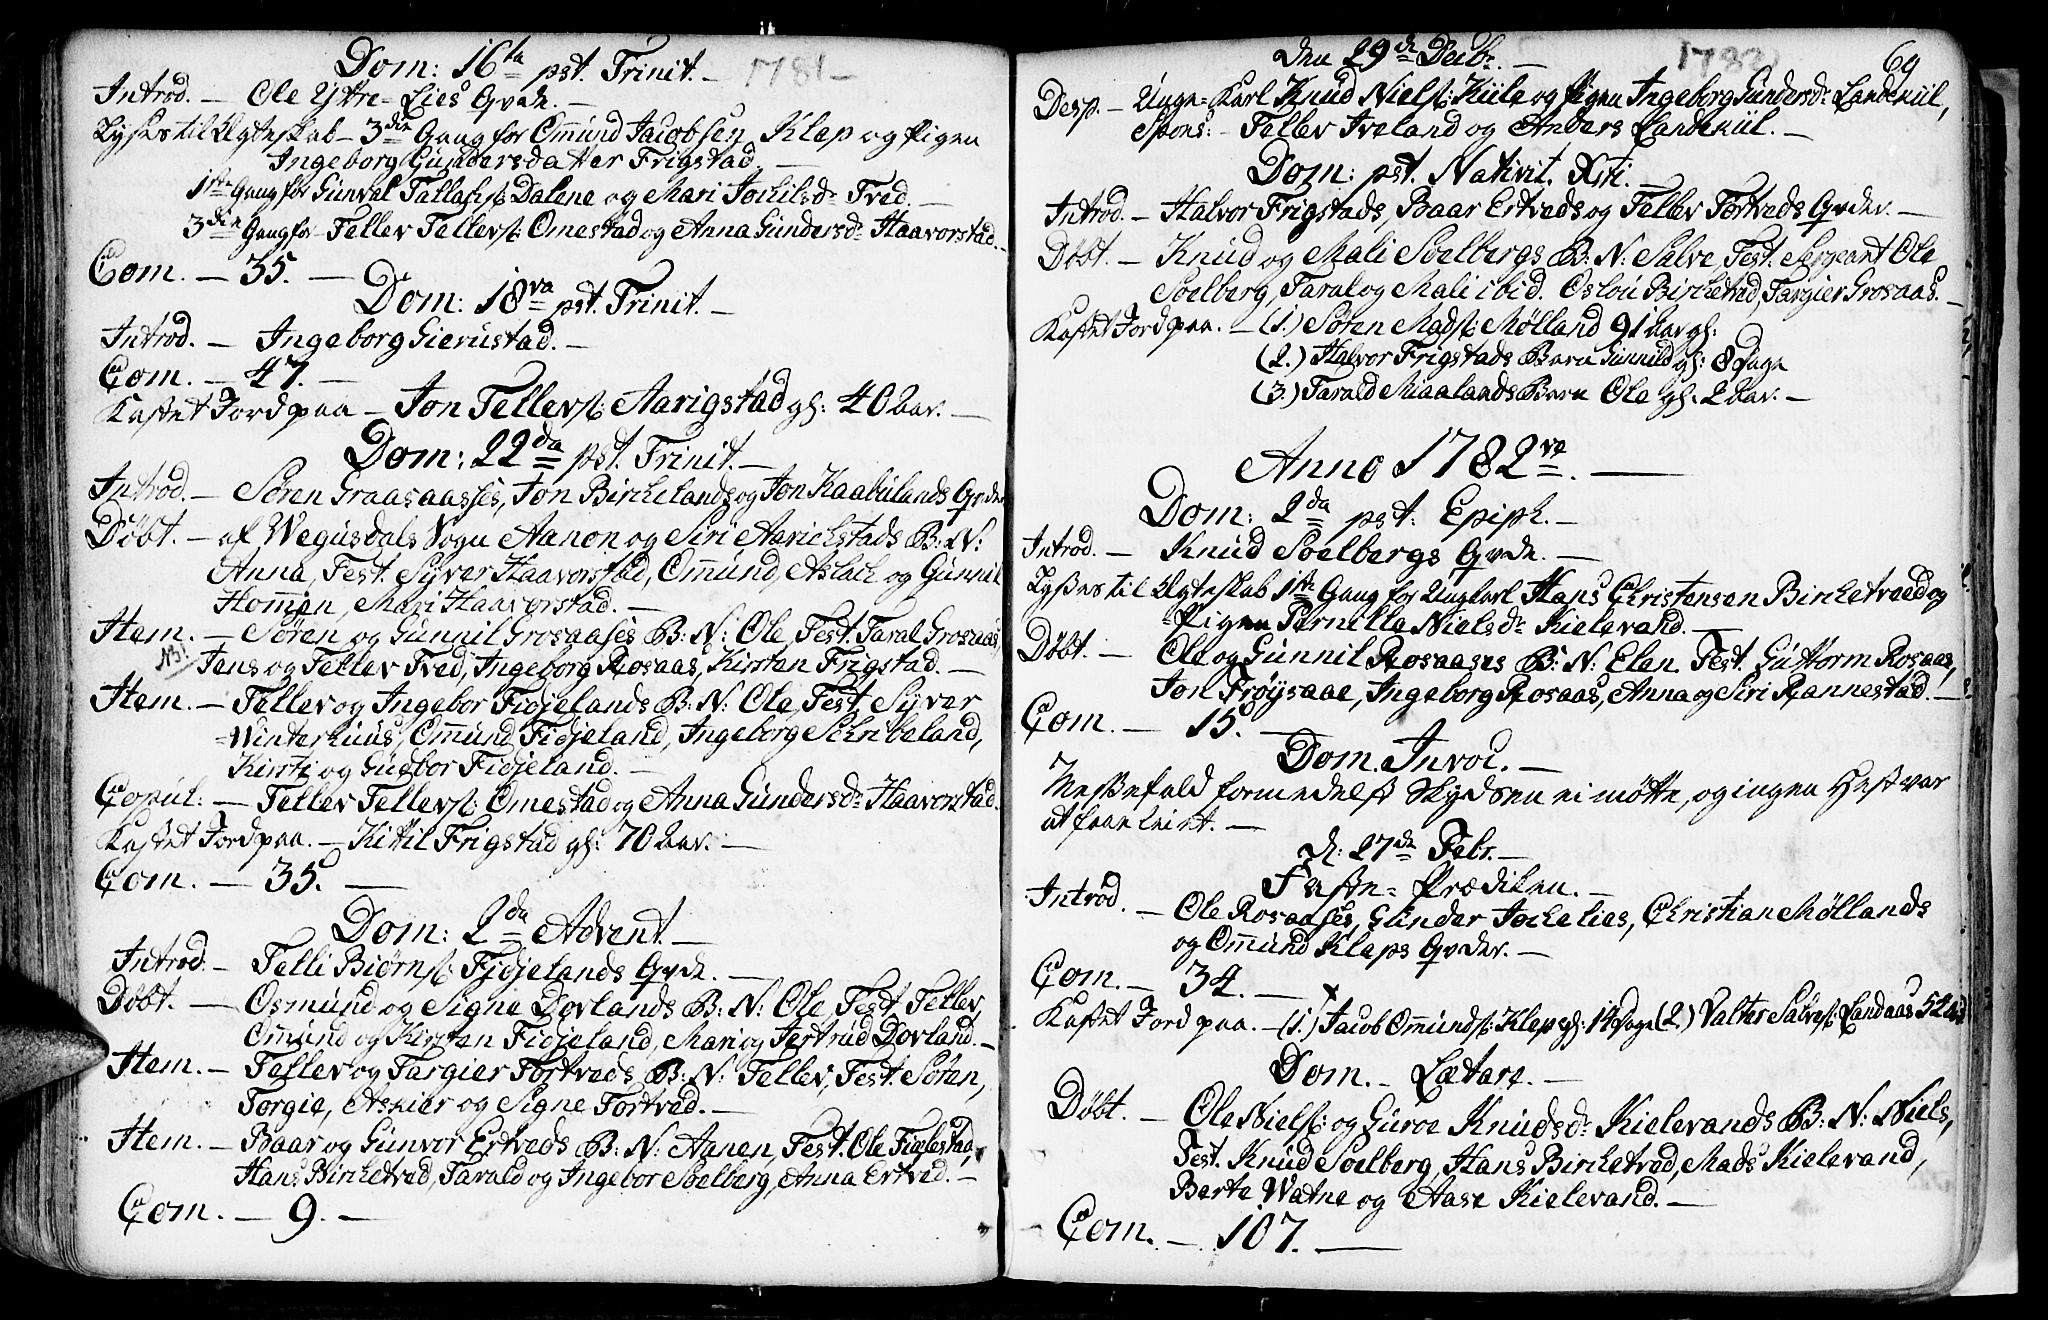 Dom: 16ta pst. Trinit. – 1781 –
Introd. – Ole Yttre-Lies Qvde. –
Lyses til Ægteskab – 3die Gang for Ommund Jacobsen Klep og Pigen
Ingeborg Gundersdatter Frigstad. –
1ste Gang for Gunval Tallafs: Dalene og Mari Jockilsdr Tved. –
3die Gang for Tellev Tellevs: Omestad og Anna Gundersdr Haavorstad. –
Com. – 35. –
Dom: 18va pst. Trinit. –
Introd. – Ingeborg Gierustad. –
Com. – 47. –
Kastet Jord paa – Jon Tellevs: Aarigstad gl: 40 aar. –
Dom: 22da pst. Trinit. –
Introd. – Søren Graasaasses, Jon Birkelands og Jon Kaabulands Qvder
Døbt. – af Wegusdals Sogn Aanon og Siri Aarickstads B: N:
Anna, Test. Syver Haavorstad, Ommund, Aslach og Gunnil
Hommen, Mari Haavorstad. –
Item. – Søren og Gunnil Grosaases B: N: Ole, Test. Taral Grosaas,
NB! Jens og Tellev Tved, Ingeborg Rosaas, Kirsten Frigstad. –
Item. – Tellev og Ingebor Fidjelands B: N: Ole, Test. Syver
Winterhuus, Ommund Fidjeland, Ingeborg Schribeland,
Kirsti og Gudbor Fidjeland. –
Copul: – Tellev Tellevs: Omestad og Anna Gundersdr Haavorstad.
Kastet Jord paa. – Kittil Frigstad gl: 70 aar. –
Com. – 35. –
Dom: 2da Advent. –
Introd. – Telli Biørns: Fidjelands Qvde. –
Døbt. – Osmund og Signe Dovlands B: N: Ole, Test. Tellev,
Ommund og Kirsten Fidjeland, Mari og Jertrud Dovland. –
Item. – Tellev og Targier Tortveds B: N: Tellev, Test. Søren,
Torgie, Askier og Signe Tortved. –
Item. – Baar og Gunvor Ertveds B: N: Aanen, Test. Ole Fielestad,
Hans Birchetved, Tarald og Ingebor Soelberg, Anna Ertved. –
Com. – 9. –
Den 29de Decbr. – 1782 69
Desp. – Unge-Karl Knud Niels: Kiile og Pigen Ingeborg Gundersdr Landekiil,
Spons: – Tellev Iveland og Anders Landekiil. –
Dom: pst. Nativit. Xsti. –
Introd. – Halvor Frigstads, Baar Ertveds og Tellev Tortveds Qvder. –
Døbt. – Knud og Mali Soelbergs B: N: Salve, Test. Sergeant Ole
Soelberg, Taral og Mali ibid. Oslou Birchetved, Targier Grosaas. –
Kastet Jord paa. – (1.) Søren Mads: Mølland 91 aar gl:
(2.) Halvor Frigstads Barn Gunnild gl: 8 Dage
(3.) Tarald Miaalands Barn Ole gl. 2 aar. –
Anno 1782ve. –
Dom: 2da pst: Epiph. –
Introd. – Knud Soelbergs Qvde. –
Lyses til Ægteskab 1ste Gang for Ungkarl Hans Christensen Birchetveed og
Pigen Pernille Nielsdr Kielevand. –
Døbt. – Ole og Gunnil Rosaases B: N: Elen. Test. Guttorm Rosaas,
Jon Frøysaae, Ingeborg Rosaas, Anna og Siri Rannestad. –
Com. – 15. –
Dom. Invoc. –
Messefald formedelst Skydsen ei mötte, og ingen Hest var
at faae leiet. –
d: 27de Febr. –
Faste-Prædiken. –
Introd. – Ole Rosaases, Gunder Jockelies, Christian Møllands
og Ommund Kleps Qvder. –
Com. – 34. –
Kastet Jord paa. – (1.) Jacob Ommunds: Klep gl: 14 Dage (2.) Valter Salves: Landaas 52 aar
Dom. – Lætare. –
Døbt. – Ole Niels: og Guroe Knudsdr Kielevands B: N: Niels,
Test. Knud Soelberg, Hans Birchetved, Mads Kielevand,
Berte Watne og Aase Kielevand. –
Com. – 107. –